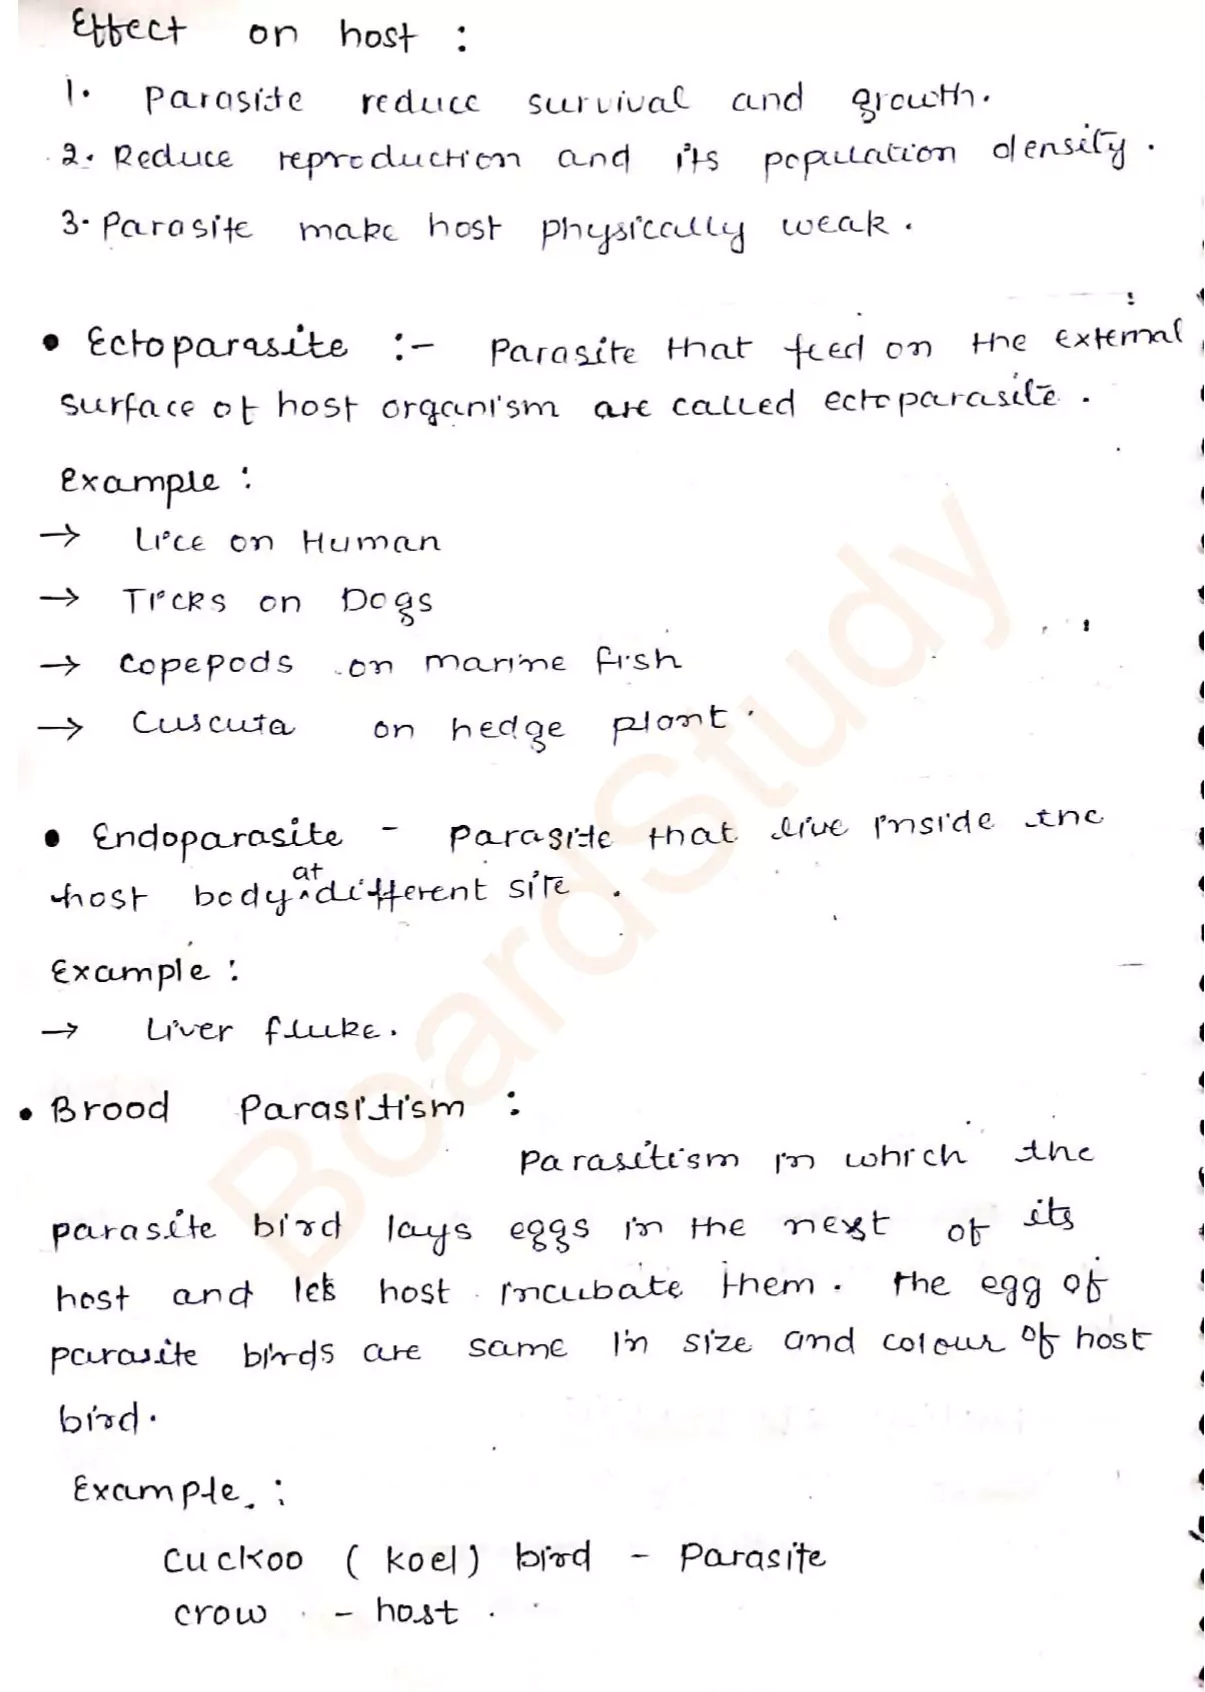 Effect on host :
1. Parasite reduce survival and growth.
2. Reduce reproduction and its population density.
3. Parasite make host physically weak.
• Ectoparasite :- Parasite that feed on the external
surface of host organism are called ectoparasite.
Example :
→ Lice on Human
→ Ticks on Dogs
→ Copepods on marine fish
→ Cuscuta on hedge plant.
• Endoparasite - Parasite that live inside the
host body at different site.
Example :
→ Liver fluke.
• Brood Parasitism :
Parasitism in which the
parasite bird lays eggs in the nest of its
host and lets host incubate them. The egg of
parasite birds are same in size and colour of host
bird.
Example :
Cuckoo (koel) bird - Parasite
crow - host.
BoardStudy